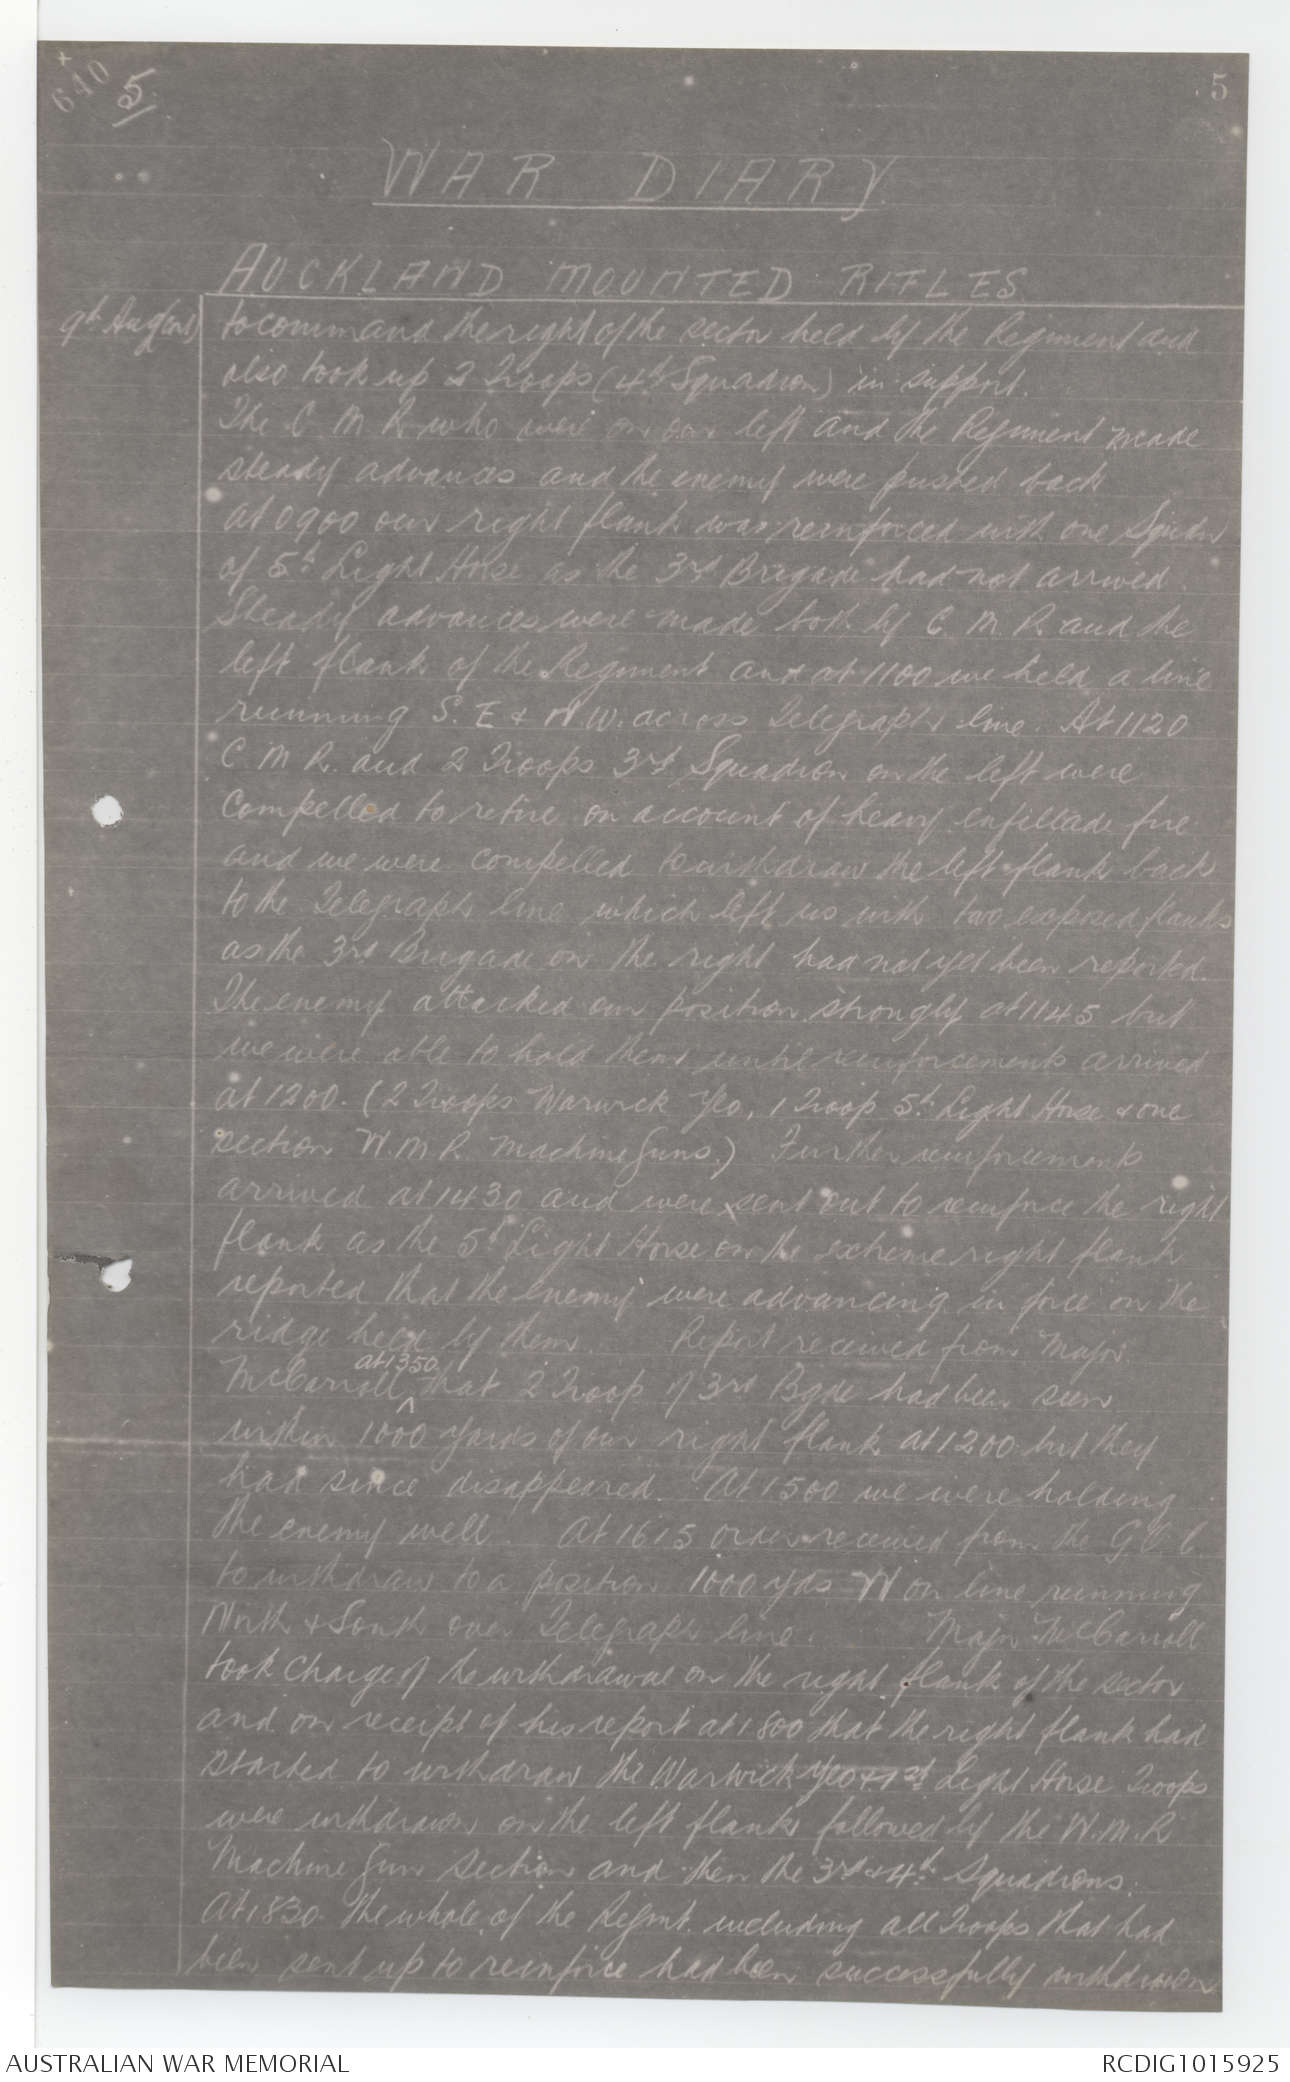 +
640
5
5
WAR DIARY
AUCKLAND MOUNTED RIFLES
9th Aug (cont) to command the right of the sector held by the Regiment and
also took up 2 Troops (4th Squadron) in support.
The C M R who were on our left and the Regiment made
steady advances and the enemy were pushed back
at 0900 our right flank was reinforced with one Squdn
of 5th Light Horse as the 3rd Brigade had not arrived.
Steady advances were made both by C. M. R. and the
left flank of the Regiment and at 1100 we held a line
running S. E & N.W. across Telegraph line. At 1120
C M R. and 2 Troops 3rd Squadron on the left were
compelled to retire on account of heavy enfillade fire
and we were compelled to withdraw the left flank back
to the Telegraph line which left us with two exposed flanks
as the 3rd Brigade on the right had not yet been reported.
The enemy attacked our position strongly at 1145 but
we were able to hold them until reinforcements arrived
at 1200. (2 Troops Warwick Yeo, 1 Troop 5th Light Horse & one
section W.M.R. Machine Guns.) Further reinforcements
arrived at 1430 and were sent out to reinforce the right
flank as the 5th Light Horse on the extreme right flank
reported that the enemy were advancing in force on the
ridge held by them. Report received from Major
at 1350
McCarroll that 2 Troop of 3rd Bgde had been seen
within 1000 yards of our right flank at 1200 but they
had since disappeared. At 1500 we were holding
the enemy well. At 1615 order received from the G.O.C.
to withdraw to a position 1000 yds W on line running
North & South over Telegraph line. Major McCarroll
took charge of the withdrawal on the right flank of the sector
and on receipt of his report at 1800 that the right flank had
started to withdraw the Warwick Yeo & Light Horse Troops
were withdrawn on the left flank followed by the W.M.R
Machine Gun Section and then the 3rd & 4th Squadrons.
At 1830 the whole of the Regmt. including all Troops that had
been sent up to reinforce had been successfully withdrawn
AUSTRALIAN WAR MEMORIAL
RCDIG1015925